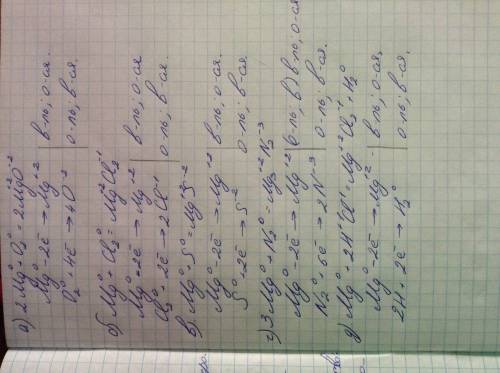 а) 2Mg⁰ + O₂⁰ = 2Mg⁺²O⁻²
Mg⁰ - 2ē → Mg⁺² | в-ль; о-ая
O₂⁰ + 4ē → 4O⁻² | о-ль; в-ая.
б) Mg⁰ + Cl₂⁰ = Mg⁺²Cl₂⁻¹
Mg⁰ - 2ē → Mg⁺² | в-ль; о-ая
Cl₂⁰ + 2ē → 2Cl⁻¹ | о-ль, в-ая.
в) Mg⁰ + S⁰ = Mg⁺²S⁻²
Mg⁰ - 2ē → Mg⁺² | в-ль; о-ая.
S⁰ + 2ē → S⁻² | о-ль; в-ая.
г) 3Mg⁰ + N₂⁰ = Mg₃⁺²N₂⁻³
Mg⁰ - 2ē → Mg⁺² | в-ль, о-ая
N₂⁰ + 6ē → 2N⁻³ | о-ль; в-ая.
д) Mg⁰ + 2H⁺Cl⁻¹ = Mg⁺²Cl₂⁻¹ + H₂⁰
Mg⁰ - 2ē → Mg⁺² | в-ль; о-ая.
2H + 2ē → H₂⁰ | о-ль, в-ая.